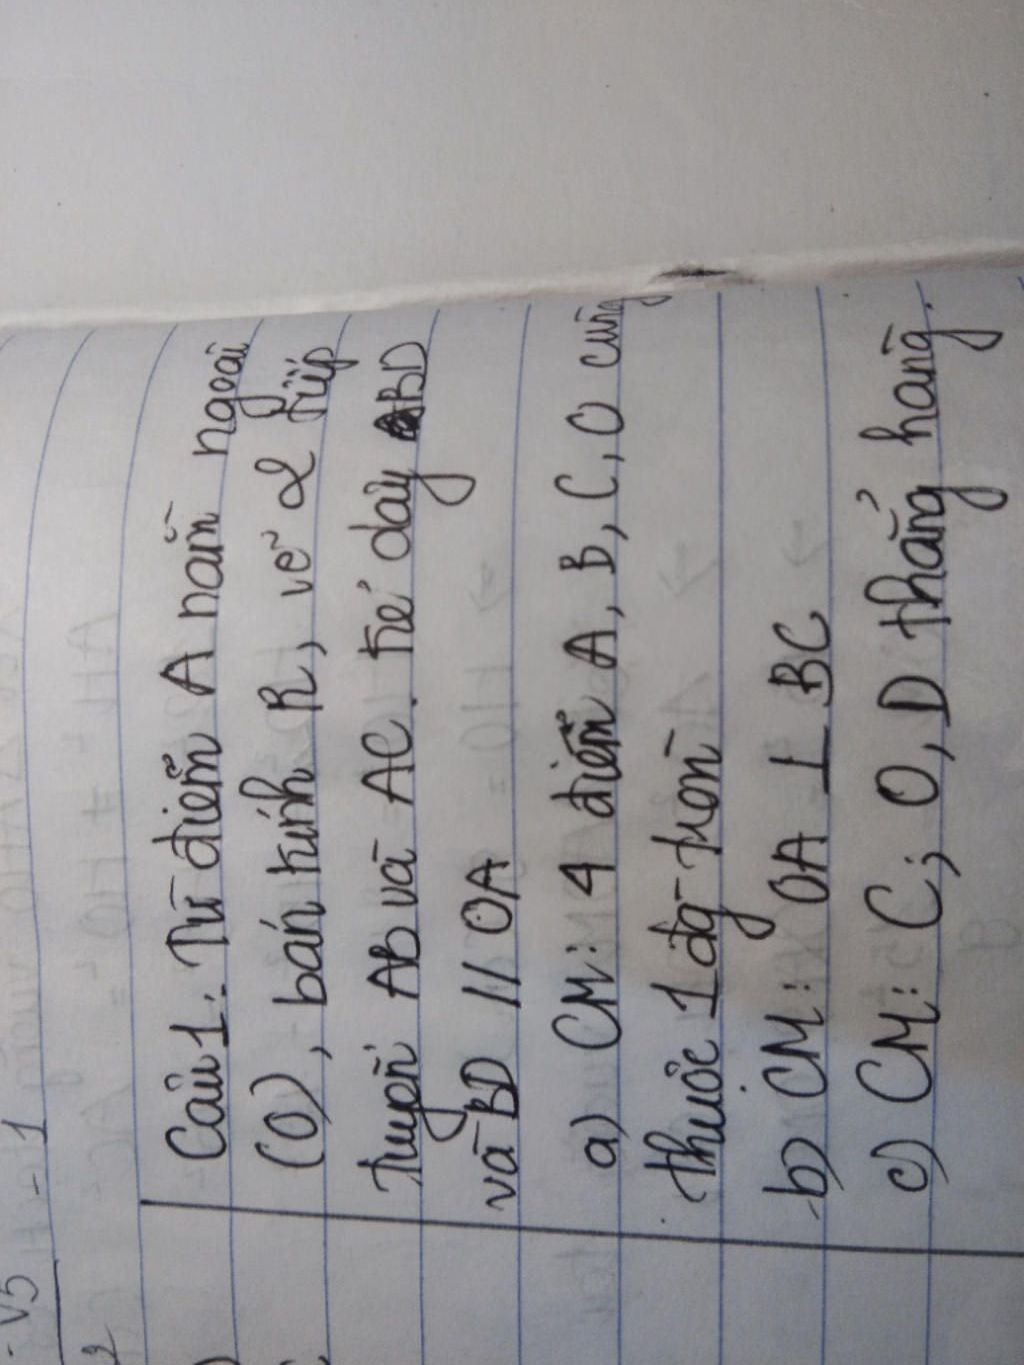 Câu 1: Từ điểm A nằm ngoài
(O), bán kính R, vẽ 2 tiếp
tuyến AB và AC. Kẻ dây BD
và BD // OA
a) CM: 4 điểm A, B, C, O cùng
thuộc 1 đg tròn
b) CM: OA ⊥ BC
c) CM: C; O, D thẳng hàng.
√5
2
- 1